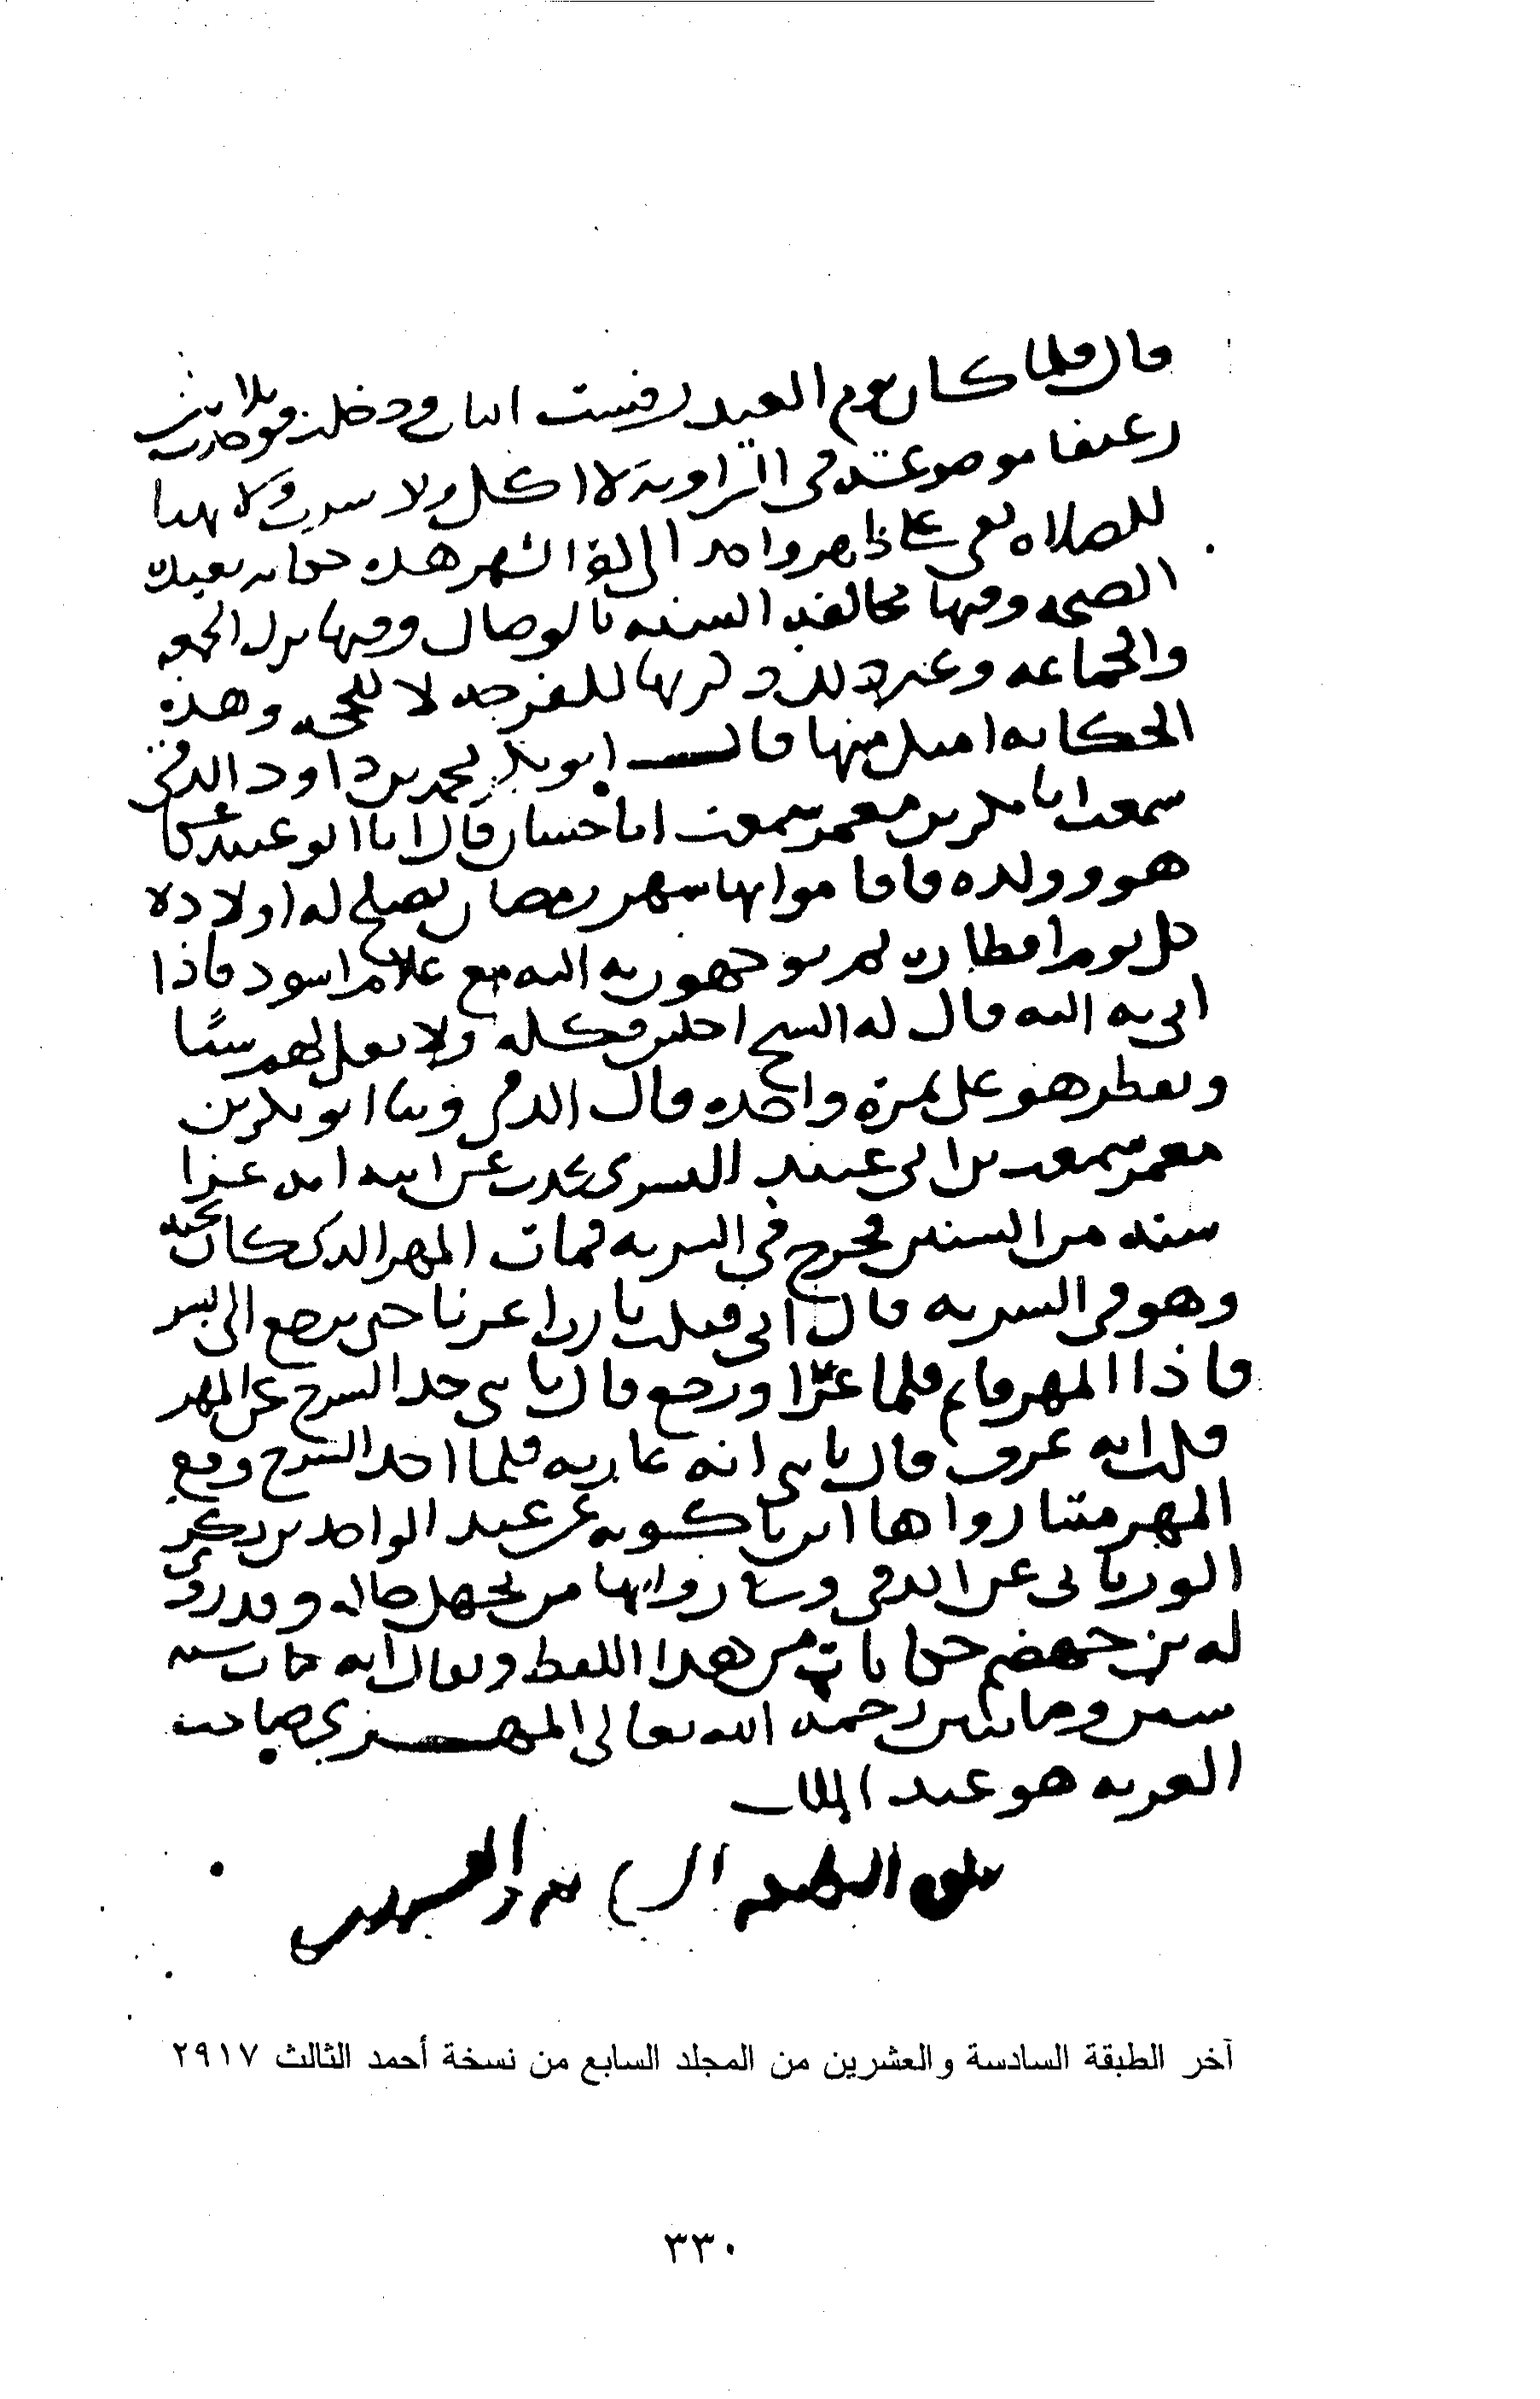 قال فلما كان يوم العيد رفست الباب ودخلت فوجدت ثلاثين
رغيفا موضوعة في الزاوية لا اكل ولا شرب ولا تهيا
للصلاة بقي على طهر واحد الى اخر الشهر هذه حكاية بعيدة
الصحة وفيها مخالفة السنة بالوصال وفيها ترك الجمعة
والجماعة وغير ذلك ذكرتها للفرجة لا للحجة وهذه
الحكاية امثل منها قال ابو بكر محمد بن داود الدقي
سمعت ابا بكر بن معمر سمعت ابا حسان قال اتانا ابو عبيد عكا
هو وولده فاقاموا بها شهر رمضان يصلح له اولاده
كل يوم افطاره ثم يوجهون به اليه مع غلام اسود فاذا
اتى به اليه قال له الشيخ اجلس فكله ولا تقل لهم شيئا
ويفطر هو على تمرة واحدة قال الدقي وثنا ابو بكر بن
معمر سمعت بن ابي عبيد البسري يحدث عن ابيه انه غزا
سنة من السنين فخرج في السرية فمات المهر الذي كان تحته
وهو في السرية قال ابي فقلت يا رب اعرنا حتى نرجع الى بسر
فاذا المهر قايم فلما غزا ورجع قال يا بني خذ السرج عن المهر
قلت انه عرق قال يا بني انه عارية فلما اخذ السرج وقع
المهر ميتا رواها ابن باكويه عن عبد الواحد بن بكر
الورثاني عن الدقي وفي رواتها من يجهل حاله وقد روى
له بن جهضم حكايات من هذا اللفظ ويقال انه مات سنة
ستين ومايتين رحمه الله تعالى المهري صاحب
العربية هو عبد الملك
الطبقة والعشرين
آخر الطبقة السادسة والعشرين من المجلد السابع من نسخة أحمد الثالث ٢٩١٧
٣٣٠